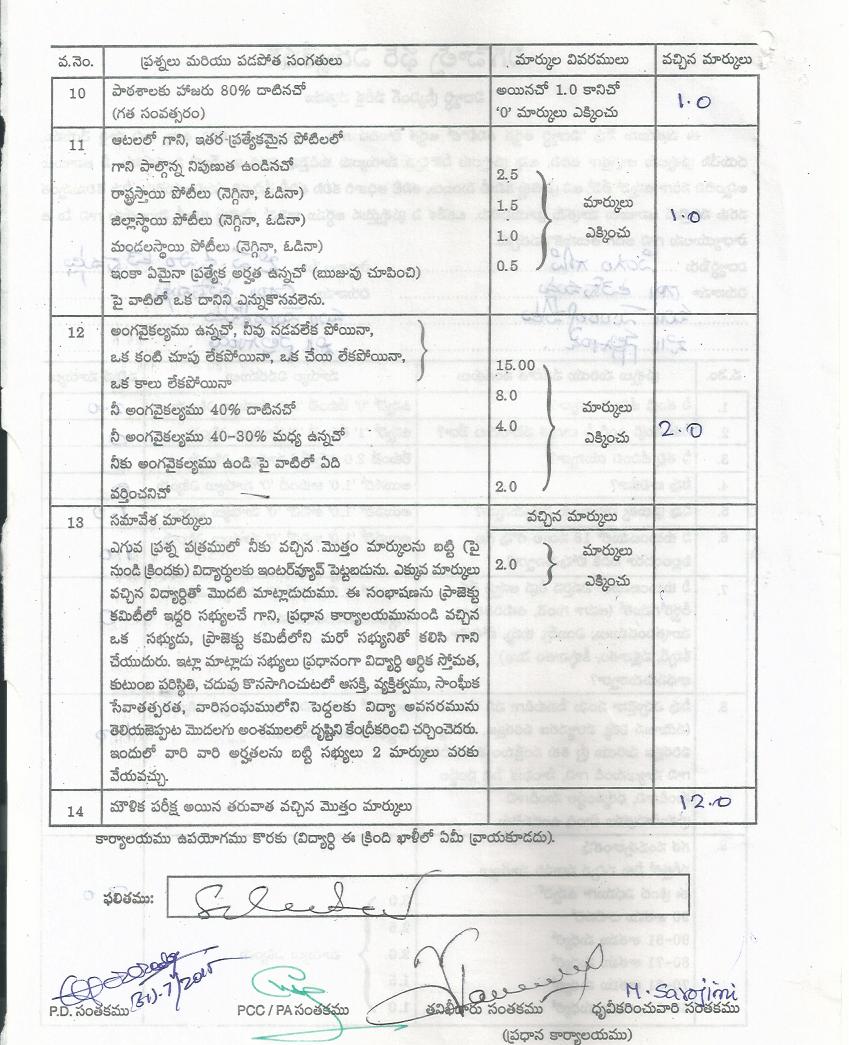 వ.నెం. ప్రశ్నలు మరియు పడపోత సంగతులు మార్కుల వివరములు వచ్చిన మార్కులు
10 పాఠశాలకు హాజరు 80% దాటినచో అయినచో 1.0 కానిచో 1.0
(గత సంవత్సరం) '0' మార్కులు ఎక్కించు
11 ఆటలలో గాని, ఇతర ప్రత్యేకమైన పోటిలలో
గాని పాల్గొన్న నిపుణుత ఉండినచో
రాష్ట్రస్తాయి పోటీలు (నెగ్గినా, ఓడినా) 2.5
జిల్లాస్థాయి పోటీలు (నెగ్గినా, ఓడినా) 1.5 మార్కులు 1.0
మండలస్థాయి పోటీలు (నెగ్గినా, ఓడినా) 1.0 ఎక్కించు
ఇంకా ఏమైనా ప్రత్యేక అర్హత ఉన్నచో (ఋజువు చూపించి) 0.5
పై వాటిలో ఒక దానిని ఎన్నుకొనవలెను.
12 అంగవైకల్యము ఉన్నచో, నీవు నడవలేక పోయినా,
ఒక కంటి చూపు లేకపోయినా, ఒక చేయి లేకపోయినా,
ఒక కాలు లేకపోయినా 15.00
నీ అంగవైకల్యము 40% దాటినచో 8.0 మార్కులు
నీ అంగవైకల్యము 40-30% మధ్య ఉన్నచో 4.0 ఎక్కించు 2.0
నీకు అంగవైకల్యము ఉండి పై వాటిలో ఏది
వర్తించనిచో 2.0
13 సమావేశ మార్కులు వచ్చిన మార్కులు
ఎగువ ప్రశ్న పత్రములో నీకు వచ్చిన మొత్తం మార్కులను బట్టి (పై 2.0 మార్కులు
నుండి క్రిందకు) విద్యార్ధులకు ఇంటర్‌వ్యూవ్ పెట్టబడును. ఎక్కువ మార్కులు ఎక్కించు
వచ్చిన విద్యార్ధితో మొదటి మాట్లాడుదుము. ఈ సంభాషణను ప్రాజెక్టు
కమిటీలో ఇద్దరి సభ్యులచే గాని, ప్రధాన కార్యాలయమునుండి వచ్చిన
ఒక సభ్యుడు, ప్రాజెక్టు కమిటీలోని మరో సభ్యునితో కలిసి గాని
చేయుదురు. ఇట్లా మాట్లాడు సభ్యులు ప్రధానంగా విద్యార్ధి ఆర్ధిక స్తోమత,
కుటుంబ పరిస్థితి, చదువు కొనసాగించుటలో ఆసక్తి, వ్యక్తిత్వము, సాంఘీక
సేవాతత్పరత, వారిసంఘములోని పెద్దలకు విద్యా అవసరమును
తెలియజెప్పుట మొదలగు అంశములలో దృష్టిని కేంద్రీకరించి చర్చించెదరు.
ఇందులో వారి వారి అర్హతలను బట్టి సభ్యులు 2 మార్కులు వరకు
వేయవచ్చు.
14 మౌళిక పరీక్ష అయిన తరువాత వచ్చిన మొత్తం మార్కులు 12.0
కార్యాలయము ఉపయోగము కొరకు (విద్యార్ధి ఈ క్రింది ఖాళీలో ఏమీ వ్రాయకూడదు).
ఫలితము: Selected
(31)-7/2015 M. Sarojini
P.D. సంతకము PCC / PA సంతకము తనిఖీదారు సంతకము ధృవీకరించువారి సంతకము
(ప్రధాన కార్యాలయము)